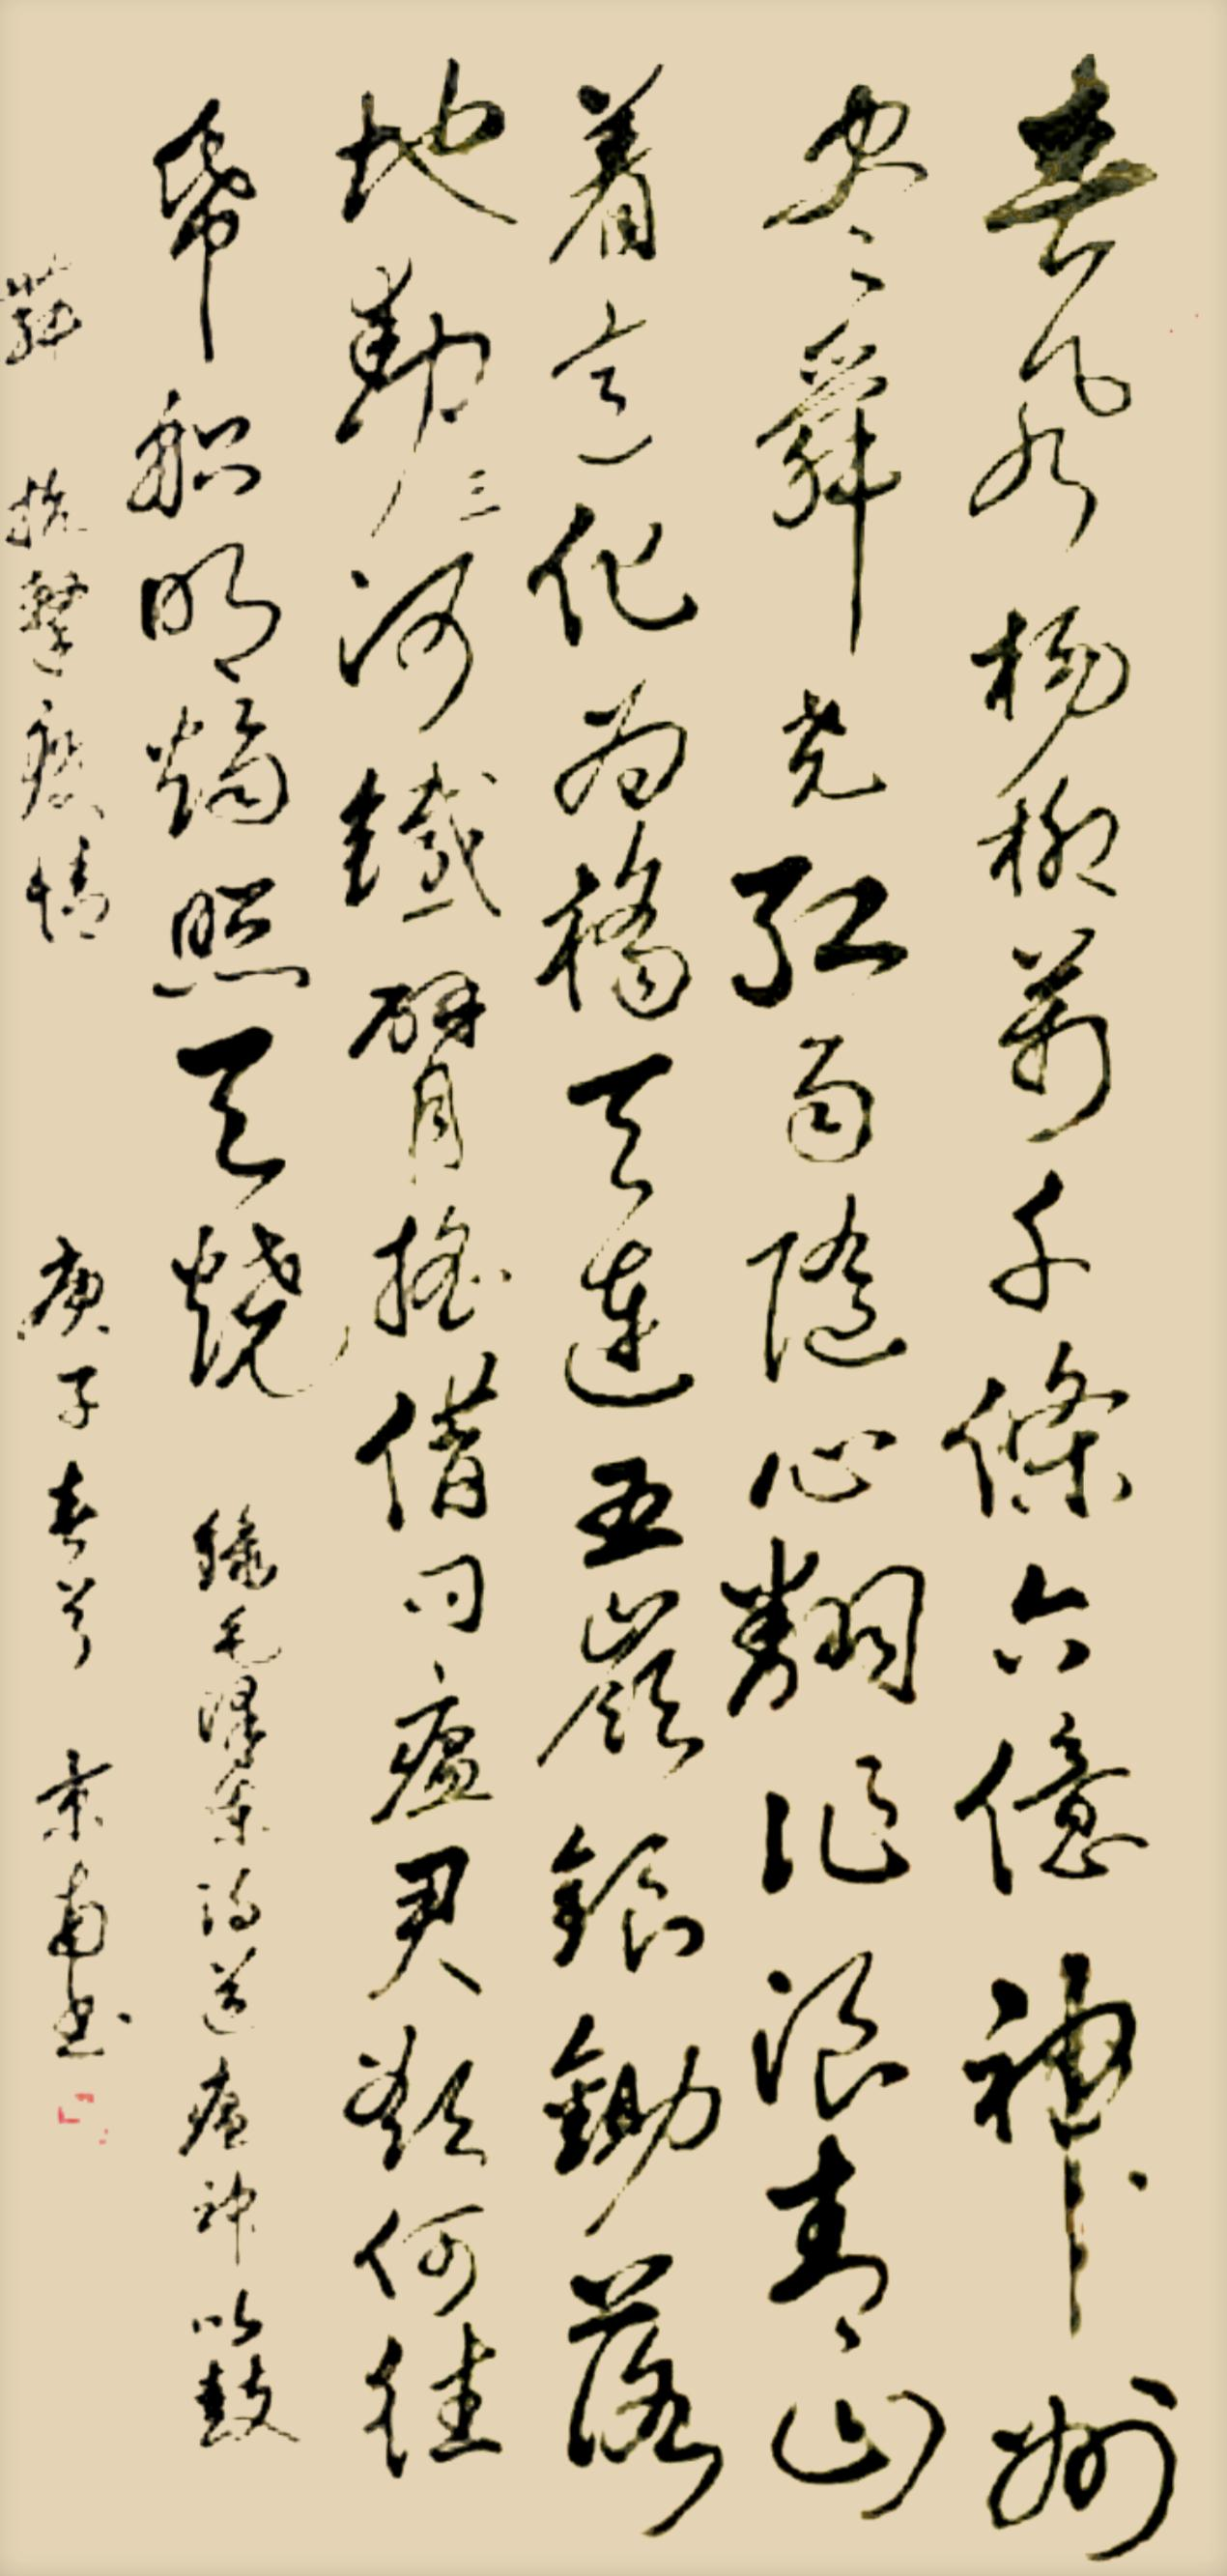 春風楊柳萬千條六億神州
尽舜尧红雨隨心翻作浪青山
着意化为橋天連五嶺銀鋤落
地動三河鐵臂搖借问瘟君欲何往
帋船明燭照天燒 錄毛澤東詩送瘟神以鼓
舞 抗擊疫情 庚子春 京 书